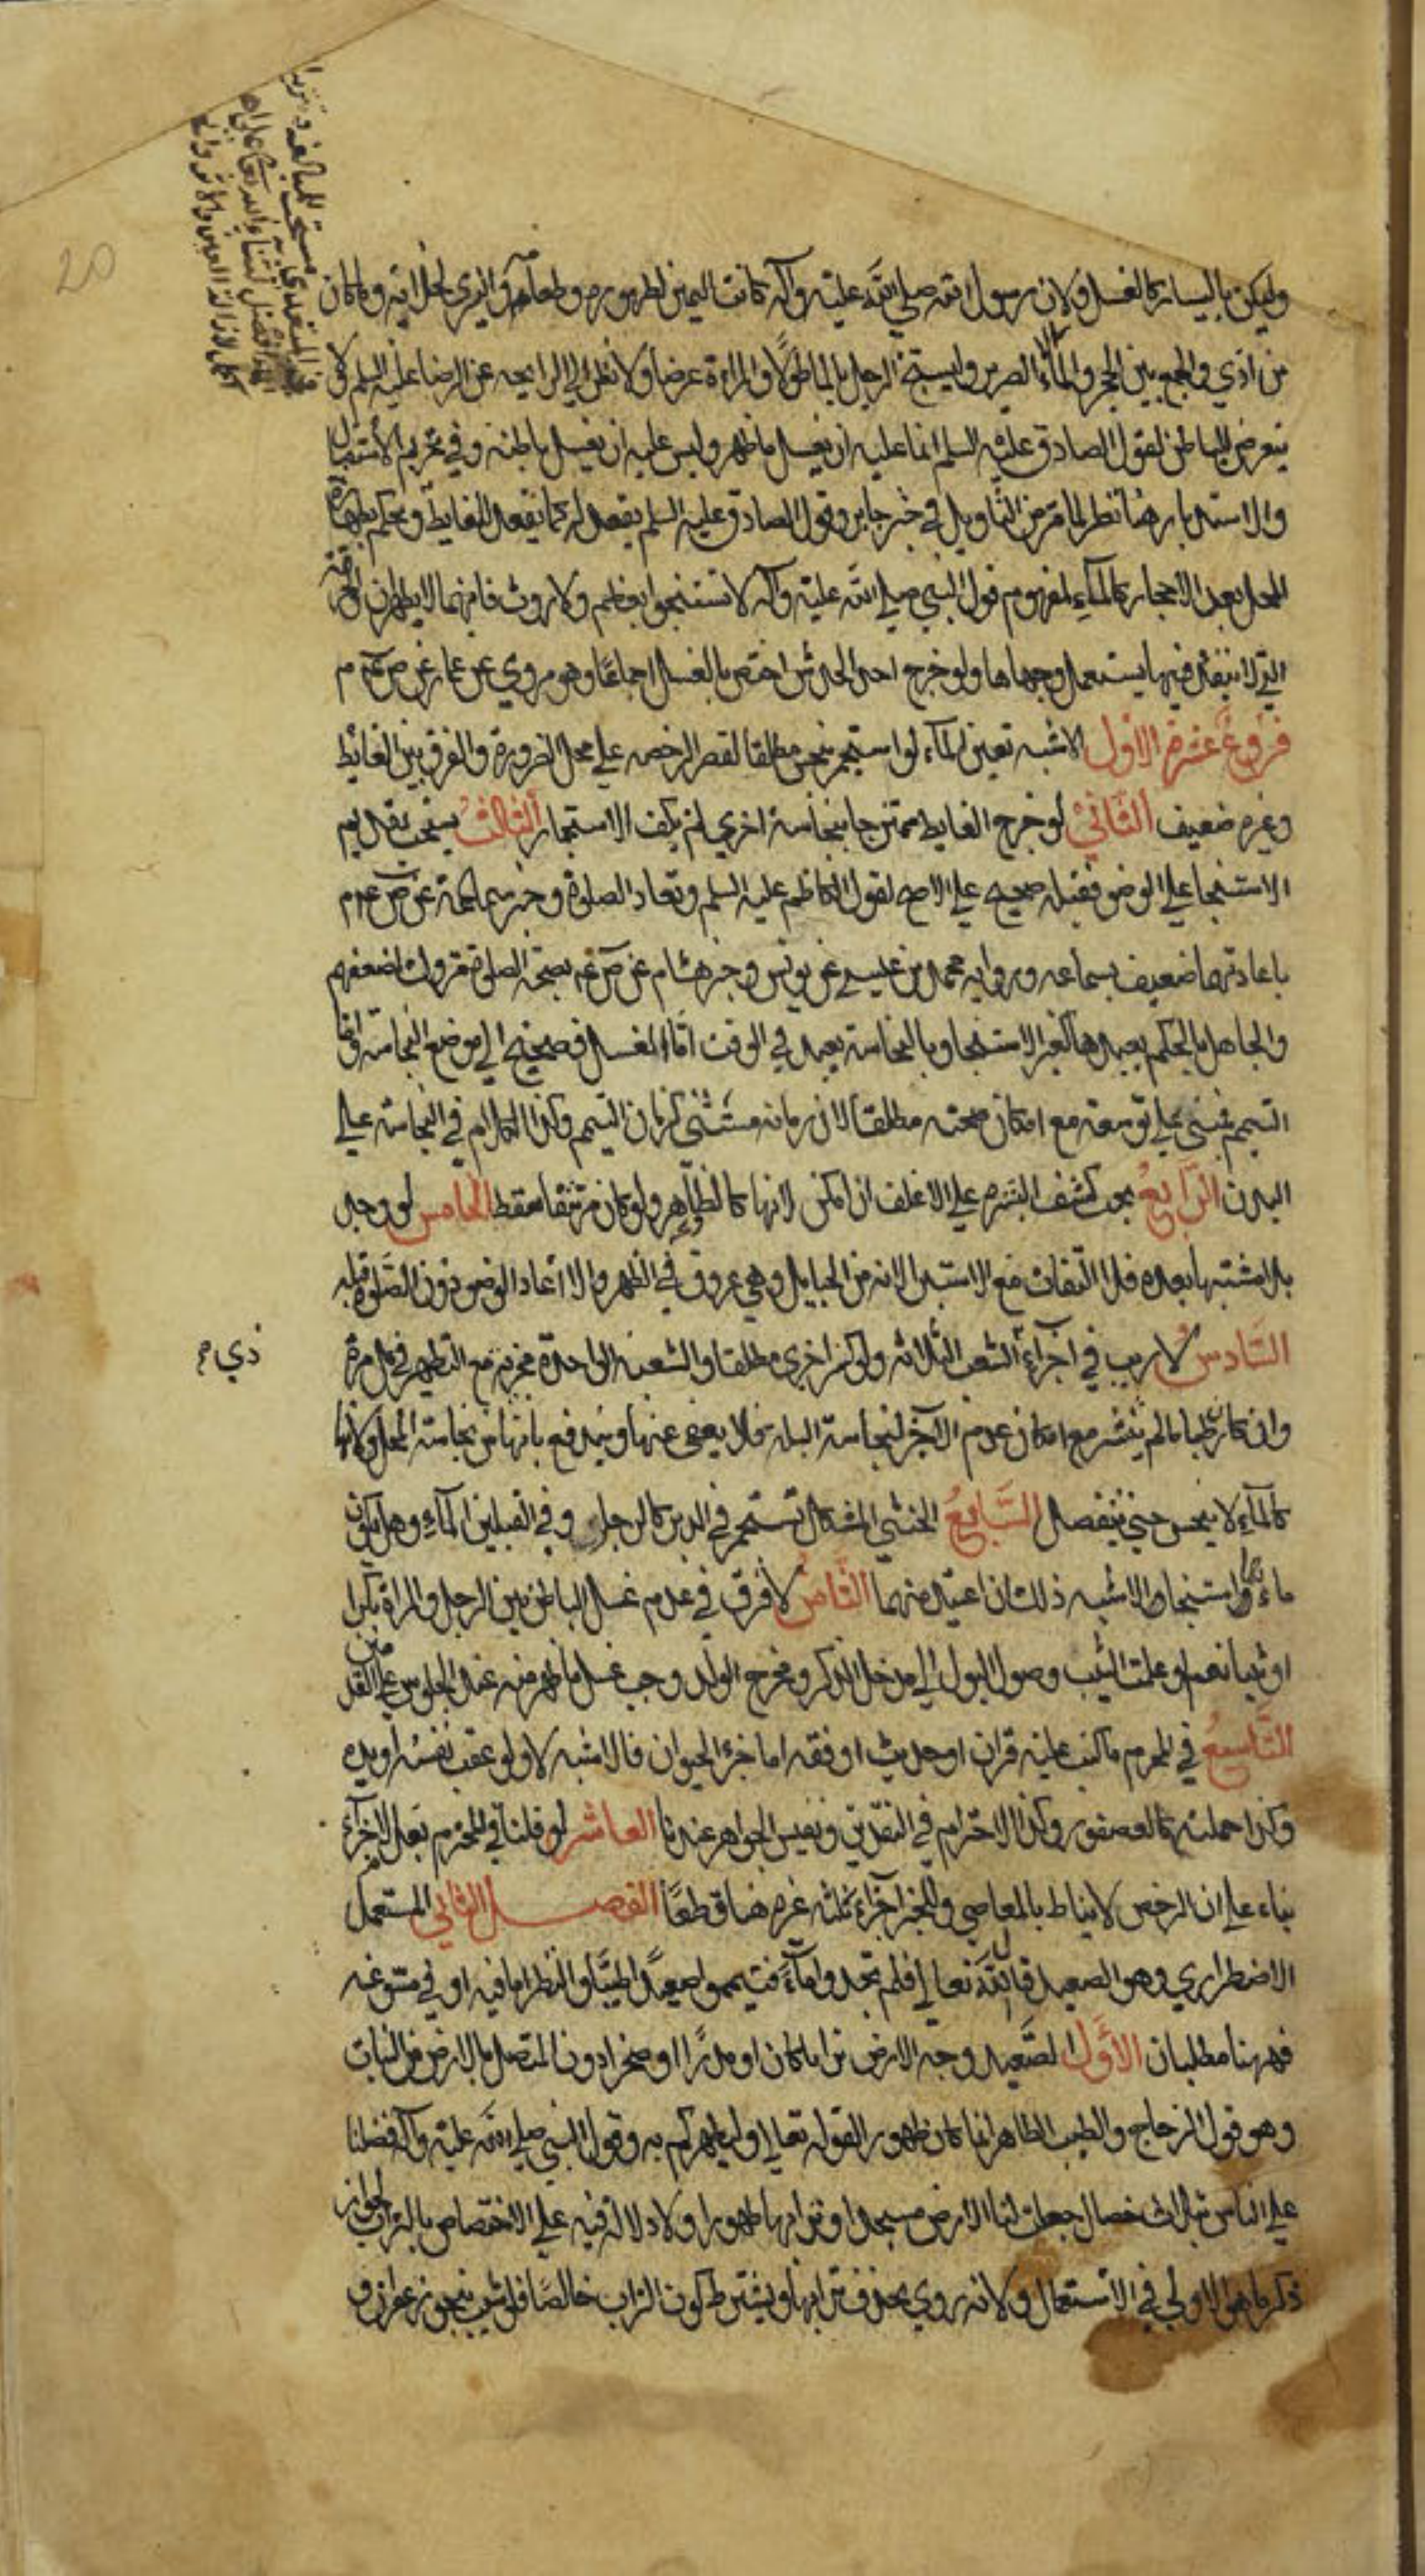 وليكن باليسار كالغسل ولان رسول الله صلى الله عليه وآله كانت اليمين لطهوره وطعامه واليسرى لخلائه وما كان
من اذي والجمع بين الحجر والماء وليستنج الرجل بالماء طولا والمراة عرضا ولا نظر الى الرايحه عن الرضا عليه السلم ولا
يتعرض للباطن لقول الصادق عليه السلم انما عليه ان يغسل ما ظهر وليس عليه ان يغسل باطنه وفي تحريم الاستقبال
والاستدبار هنا نظر لما مر من التاويل في خبر جابر وقول الصادق عليه السلم يقعد له كما يقعد للغايط ويحكم بطهارة
المحل بعد الاحجار كالماء لمفهوم قول النبي صلى الله عليه وآله لا تستنجوا بعظم ولا روث فانهما لا يطهران والخرقة
التي لا ينفذ فيها يستعمل وجهاها ولو خرج احد الحدثين اختص بالغسل اجماعا وهو مروي عن عمار عن ص عم
فروع عشرة الاول الاشبه تعين الماء لو استجمر بنجس مطلقا لقصر الرخصه على محل الضرورة والفرق بين الغائط
وغيره ضعيف الثاني لو خرج الغايط ممتزجا بنجاسة اخري لم يكف الاستجمار الثالث يستحب تقديم
الاستنجا على الوضو فقبله صحيح على الاصح لقول الكاظم عليه السلم وتعاد الصلوة وخبر سماعة عن ص عم
باعادتهما ضعيف بسماعه ورواية محمد بن عيسى عن يونس وخبر هشام عن ص عم بصحة الصلوة متروك لضعفهم
والجاهل بالحكم يعيدها لغير الاستنجا وبالنجاسة يعيد في الوقت اما الغسل فصحيح الى موضع النجاسة واما
التيمم فمبني على توسعته مع امكان صحته مطلقا لان زمانه مستثنى كزمان التيمم وكذا الكلام في النجاسة على
البدن الرابع يجب كشف البشره على الاغلف ان امكن لانها كالظاهر ولو كان مرتتقا سقط الخامس لو وجد
بللا مشتبها بعده فلا التفات مع الاستبرا لانه من الحبايل وهي عروق في الظهر والا اعاد الوضو دون الصلوة قبله
السادس لا ريب في اجزاء ذي الشعب الثلاثة ولو كثر اخرى مطلقا والشعبة الواحدة مجزية مع التطهير في كل مرة
وان كان رطبا ما لم ينشر مع امكان عدم الاجزا لنجاسة البلل فلا يعفى عنها ويندفع بانها من نجاسة المحل ولانها
كالماء لا ينجس حتى ينفصل السابع الخنثى المشكل تستجمر في الدبر كالرجل وفي القبلين الماء وهل يكون
ماءهما استنجا والاشبه ذلك ان اعتيد منهما الثامن لا فرق في عدم غسل الباطن بين الرجل والمراة بكرا
او ثيبا نعم لو علمت الثيب وصول البول الى مدخل الذكر ومخرج الولد وجب غسل ما ظهر منه عند الجلوس على القدمين
التاسع في المحرم ما كتب عليه قران او حديث او فقه اما جزء الحيوان فالاشبه لا ولو عقب نفسه او يده
وكذا جملته كالعصفور وكذا الاحترام في النقدين ونفيس الجواهر عندنا العاشر لو قلنا في المحترم بعدم الاجزاء
بناء على ان الرخص لا يناط بالمعاصي وللخبر اجزاء ثلثه غيره هنا قطعا الفصل الثاني المستعمل
الاضطراري وهو الصعيد قال الله تعالى فلم تجدوا ماء فتيمموا صعيدا طيبا والنظر اما فيه او في مسوغه
فههنا مطلبان الاول الصعيد وجه الارض ترابا كان او مدرا او صخرا دون المتصل بالارض من النبات
وهو قول الزجاج والطيب الطاهر انما كان طهورا لقوله تعالى وليطهركم به وقول النبي صلى الله عليه وآله فضلنا
على الناس بثلاث خصال جعلت لنا الارض مسجدا وترابها طهورا ولا دلالة فيه على الاختصاص بالتراب لجواز
ذكر ما هو الاولى في الاستعمال ولانه روي بحذف ترابها ويشترط كون التراب خالصا فلو شيب بنحو زعفران و
ذي م
20